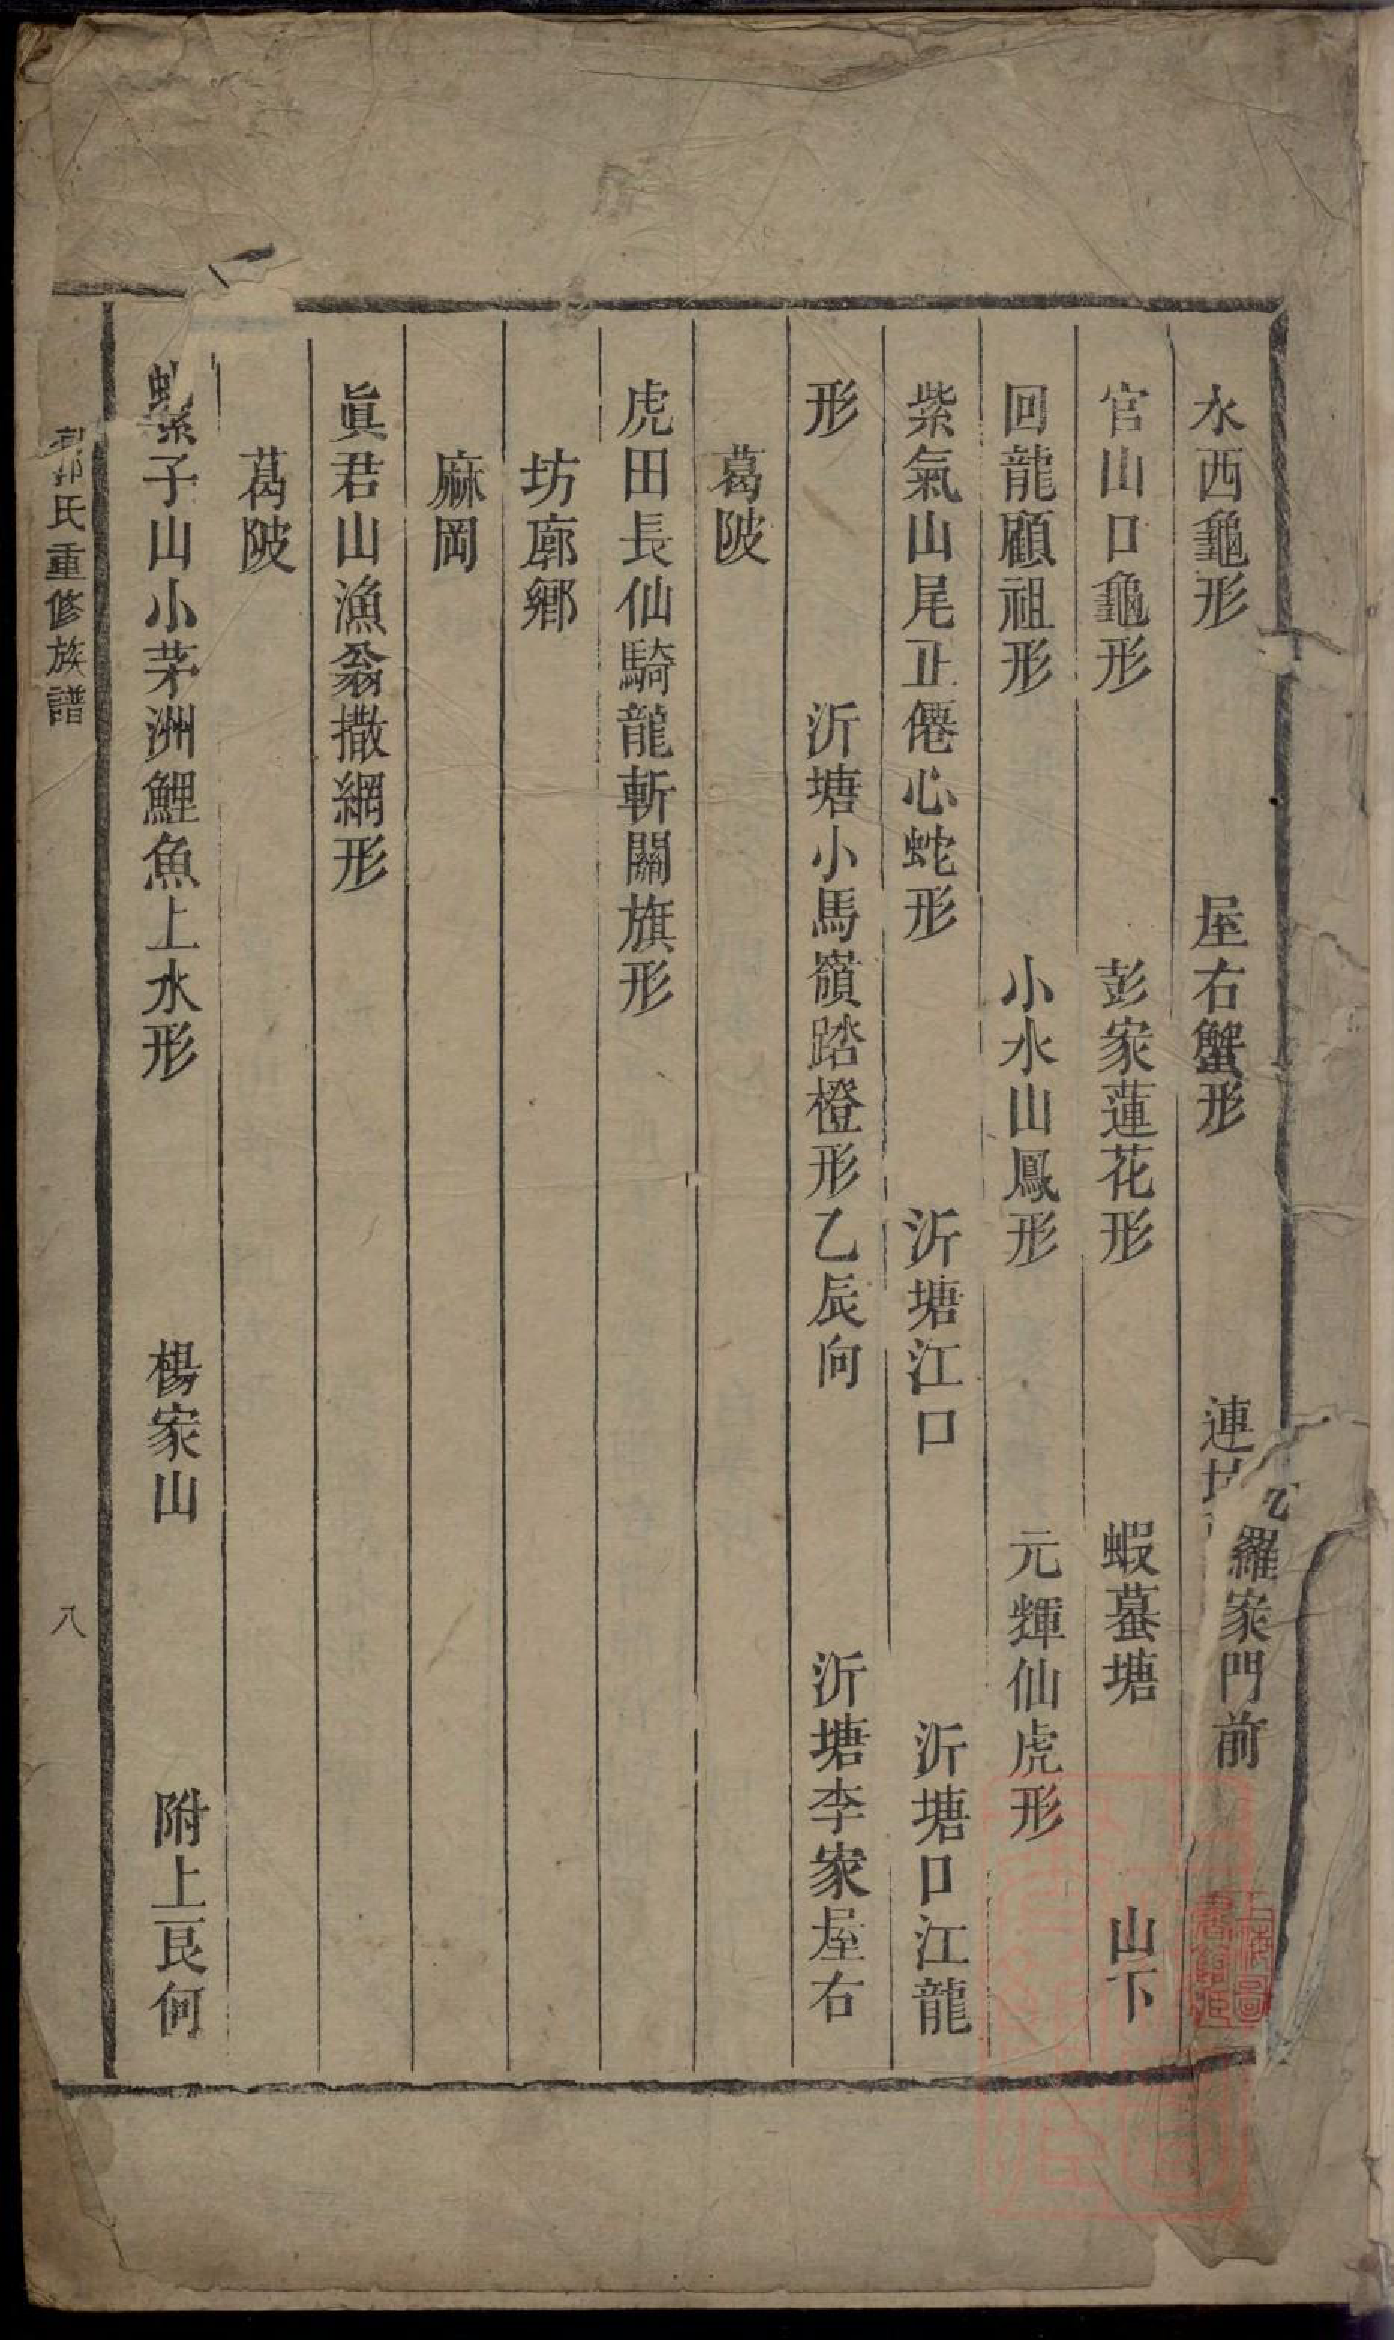 水西龜形　屋右蟹形　連　羅家門前
官山口龜形　彭家蓮花形　蝦蟇塘　山下
回龍顧祖形　小水山鳳形　元輝仙虎形
紫氣山尾正僊心蛇形　沂塘江口　沂塘口江龍
形　沂塘小馬嶺踏橙形乙辰向　沂塘李家屋右
葛陂
虎田長仙騎龍斬關旗形
坊廓鄉
麻岡
眞君山漁翁撒網形
葛陂
螺子山小茅洲鯉魚上水形　楊家山　附上艮何
郭氏重修族譜　八